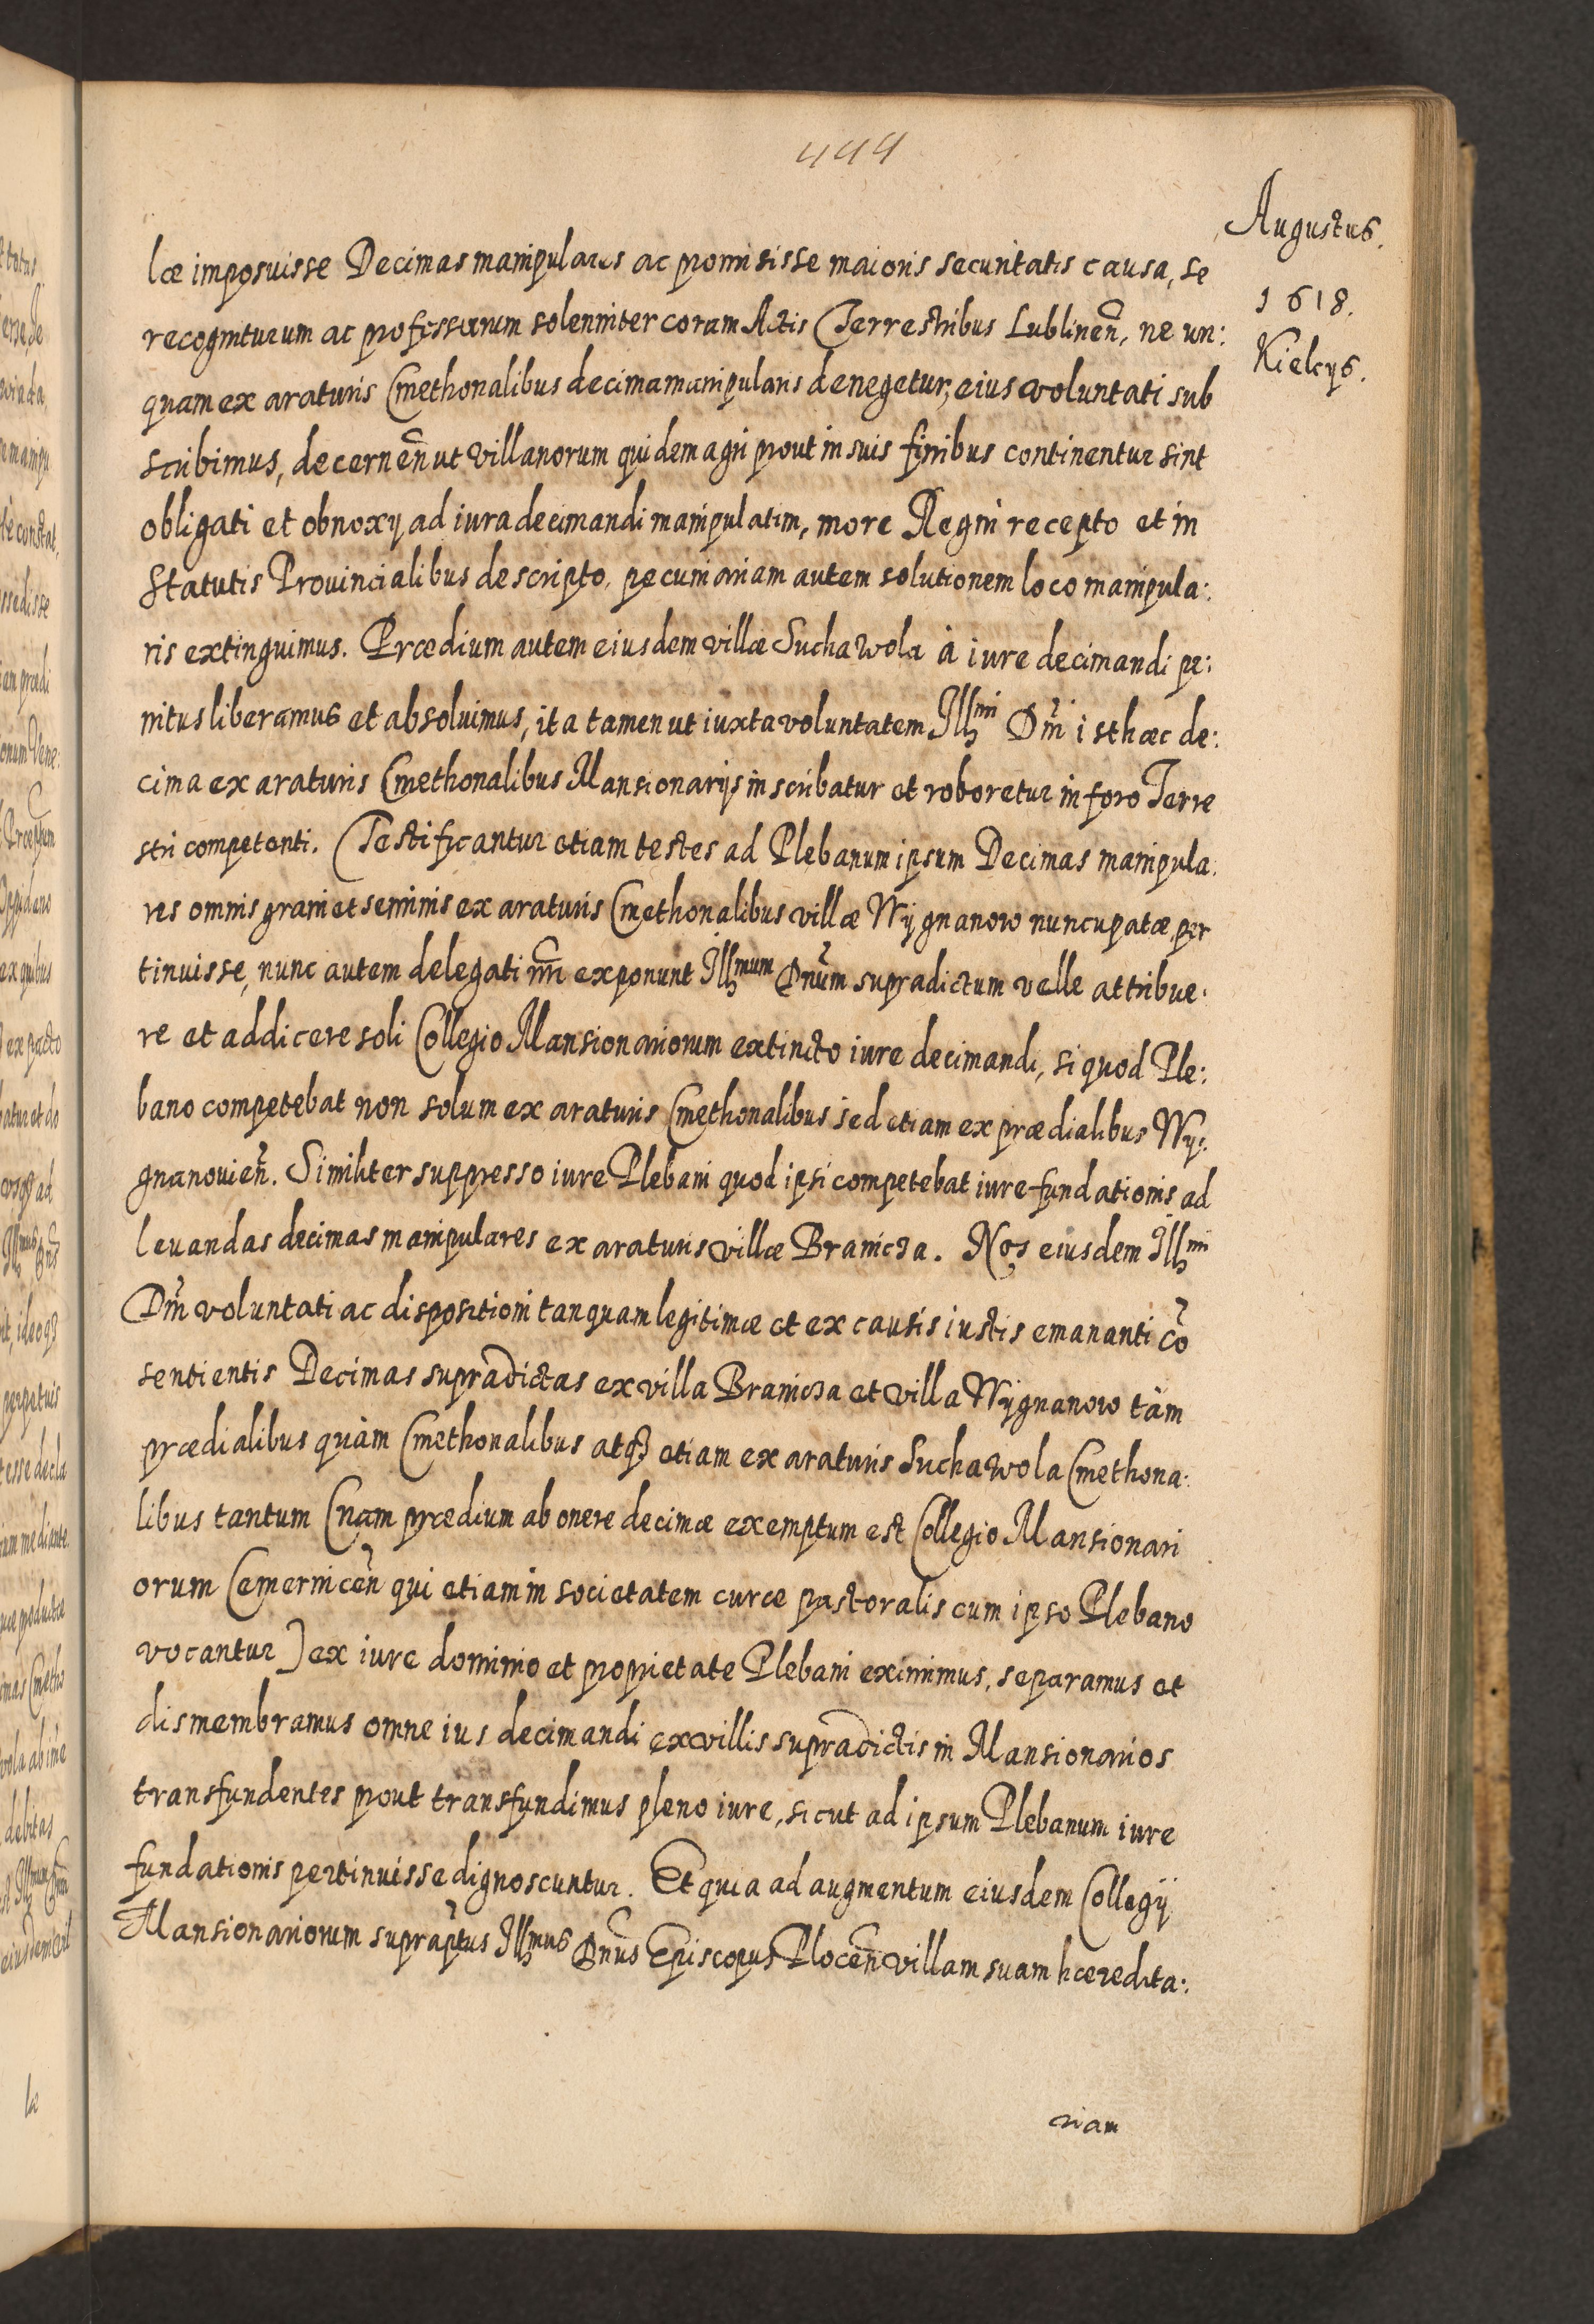 444
Augustus.
1618.
Kielcys.
læ imposuisse Decimas manipulares ac promisisse maioris securitatis causa, se
recogniturum ac professurum solenniter coram Actis Terrestribus Lublinen̄, ne un:
quam ex araturis Cmethonalibus decima manipularis denegetur, eius voluntati sub
scribimus, decernen̄ ut villanorum quidem agri prout in suis finibus continentur sint
obligati et obnoxÿ ad iura decimandi manipulatim, more Regni recepto et in
Statutis Prouincialibus descripto, pecuniariam autem solutionem loco manipula:
ris extinguimus. Prædium autem eiusdem villæ Suchawola à iure decimandi pe:
nitus liberamus et absoluimus, ita tamen ut iuxta voluntatem Illmi Dn̄i isthæc de:
cima ex araturis Cmethonalibus Mansionarijs inscribatur et roboretur in foro Terre
stri competenti. Testificantur etiam testes ad Plebanum ipsum Decimas manipula:
res omnis grani et seminis ex araturis Cmethonalibus villæ Wÿgnanow nuncupatæ, per
tinuisse, nunc autem delegati nr̄i exponunt Illmum Dn̄um supradictum velle attribue:
re et addicere soli Collegio Mansionariorum extincto iure decimandi, si quod Ple:
bano competebat non solum ex araturis Cmethonalibus sed etiam ex prædialibus Wÿ:
gnanouien̄. Similiter suppresso iure Plebani quod ipsi competebat iure fundationis ad
leuandas decimas manipulares ex araturis villæ Branicza. Nos eiusdem Illmi
Dn̄i voluntati ac dispositioni tanquam legitimæ et ex causis iustis emananti cō
sentientis Decimas supradictas ex villa Branicza et villa Wÿgnanow tàm
prædialibus quàm Cmethonalibus atq₃ etiam ex araturis Suchawola Cmethona:
libus tantum (nam prædium ab onere decimæ exemptum est Collegio Mansionari
orum Cemernicen̄ qui etiam in societatem curæ pastoralis cum ipso Plebano
vocantur) ex iure dominio et proprietate Plebani eximimus, separamus et
dismembramus omne ius decimandi ex villis supradictis in Mansionarios
transfundentes prout transfundimus pleno iure, sicut ad ipsum Plebanum iure
fundationis pertinuisse dignoscuntur. Et quia ad augmentum eiusdem Collegÿ
Mansionariorum suprap̄tus Illmus Dn̄us Episcopus Plocen̄ villam suam hæredita:
riam